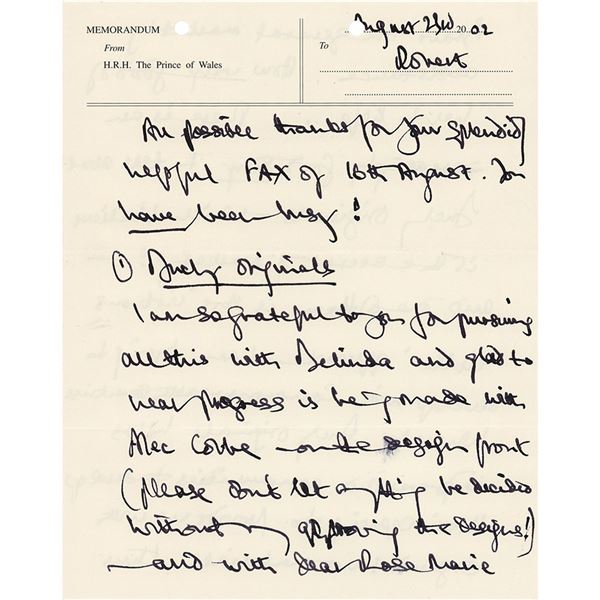 MEMORANDUM
From
H.R.H. The Prince of Wales
August 23rd 2002
To Robert
All possible thanks for your splendid,
helpful FAX of 16th August. You
have been busy!
① Duchy Originals
I am so grateful to you for pursuing
all this with Belinda and glad to
hear progress is being made with
Alec Cobbe — on the design front
(please don't let anything be decided
without my approving the designs!)
— and with dear Rose Marie